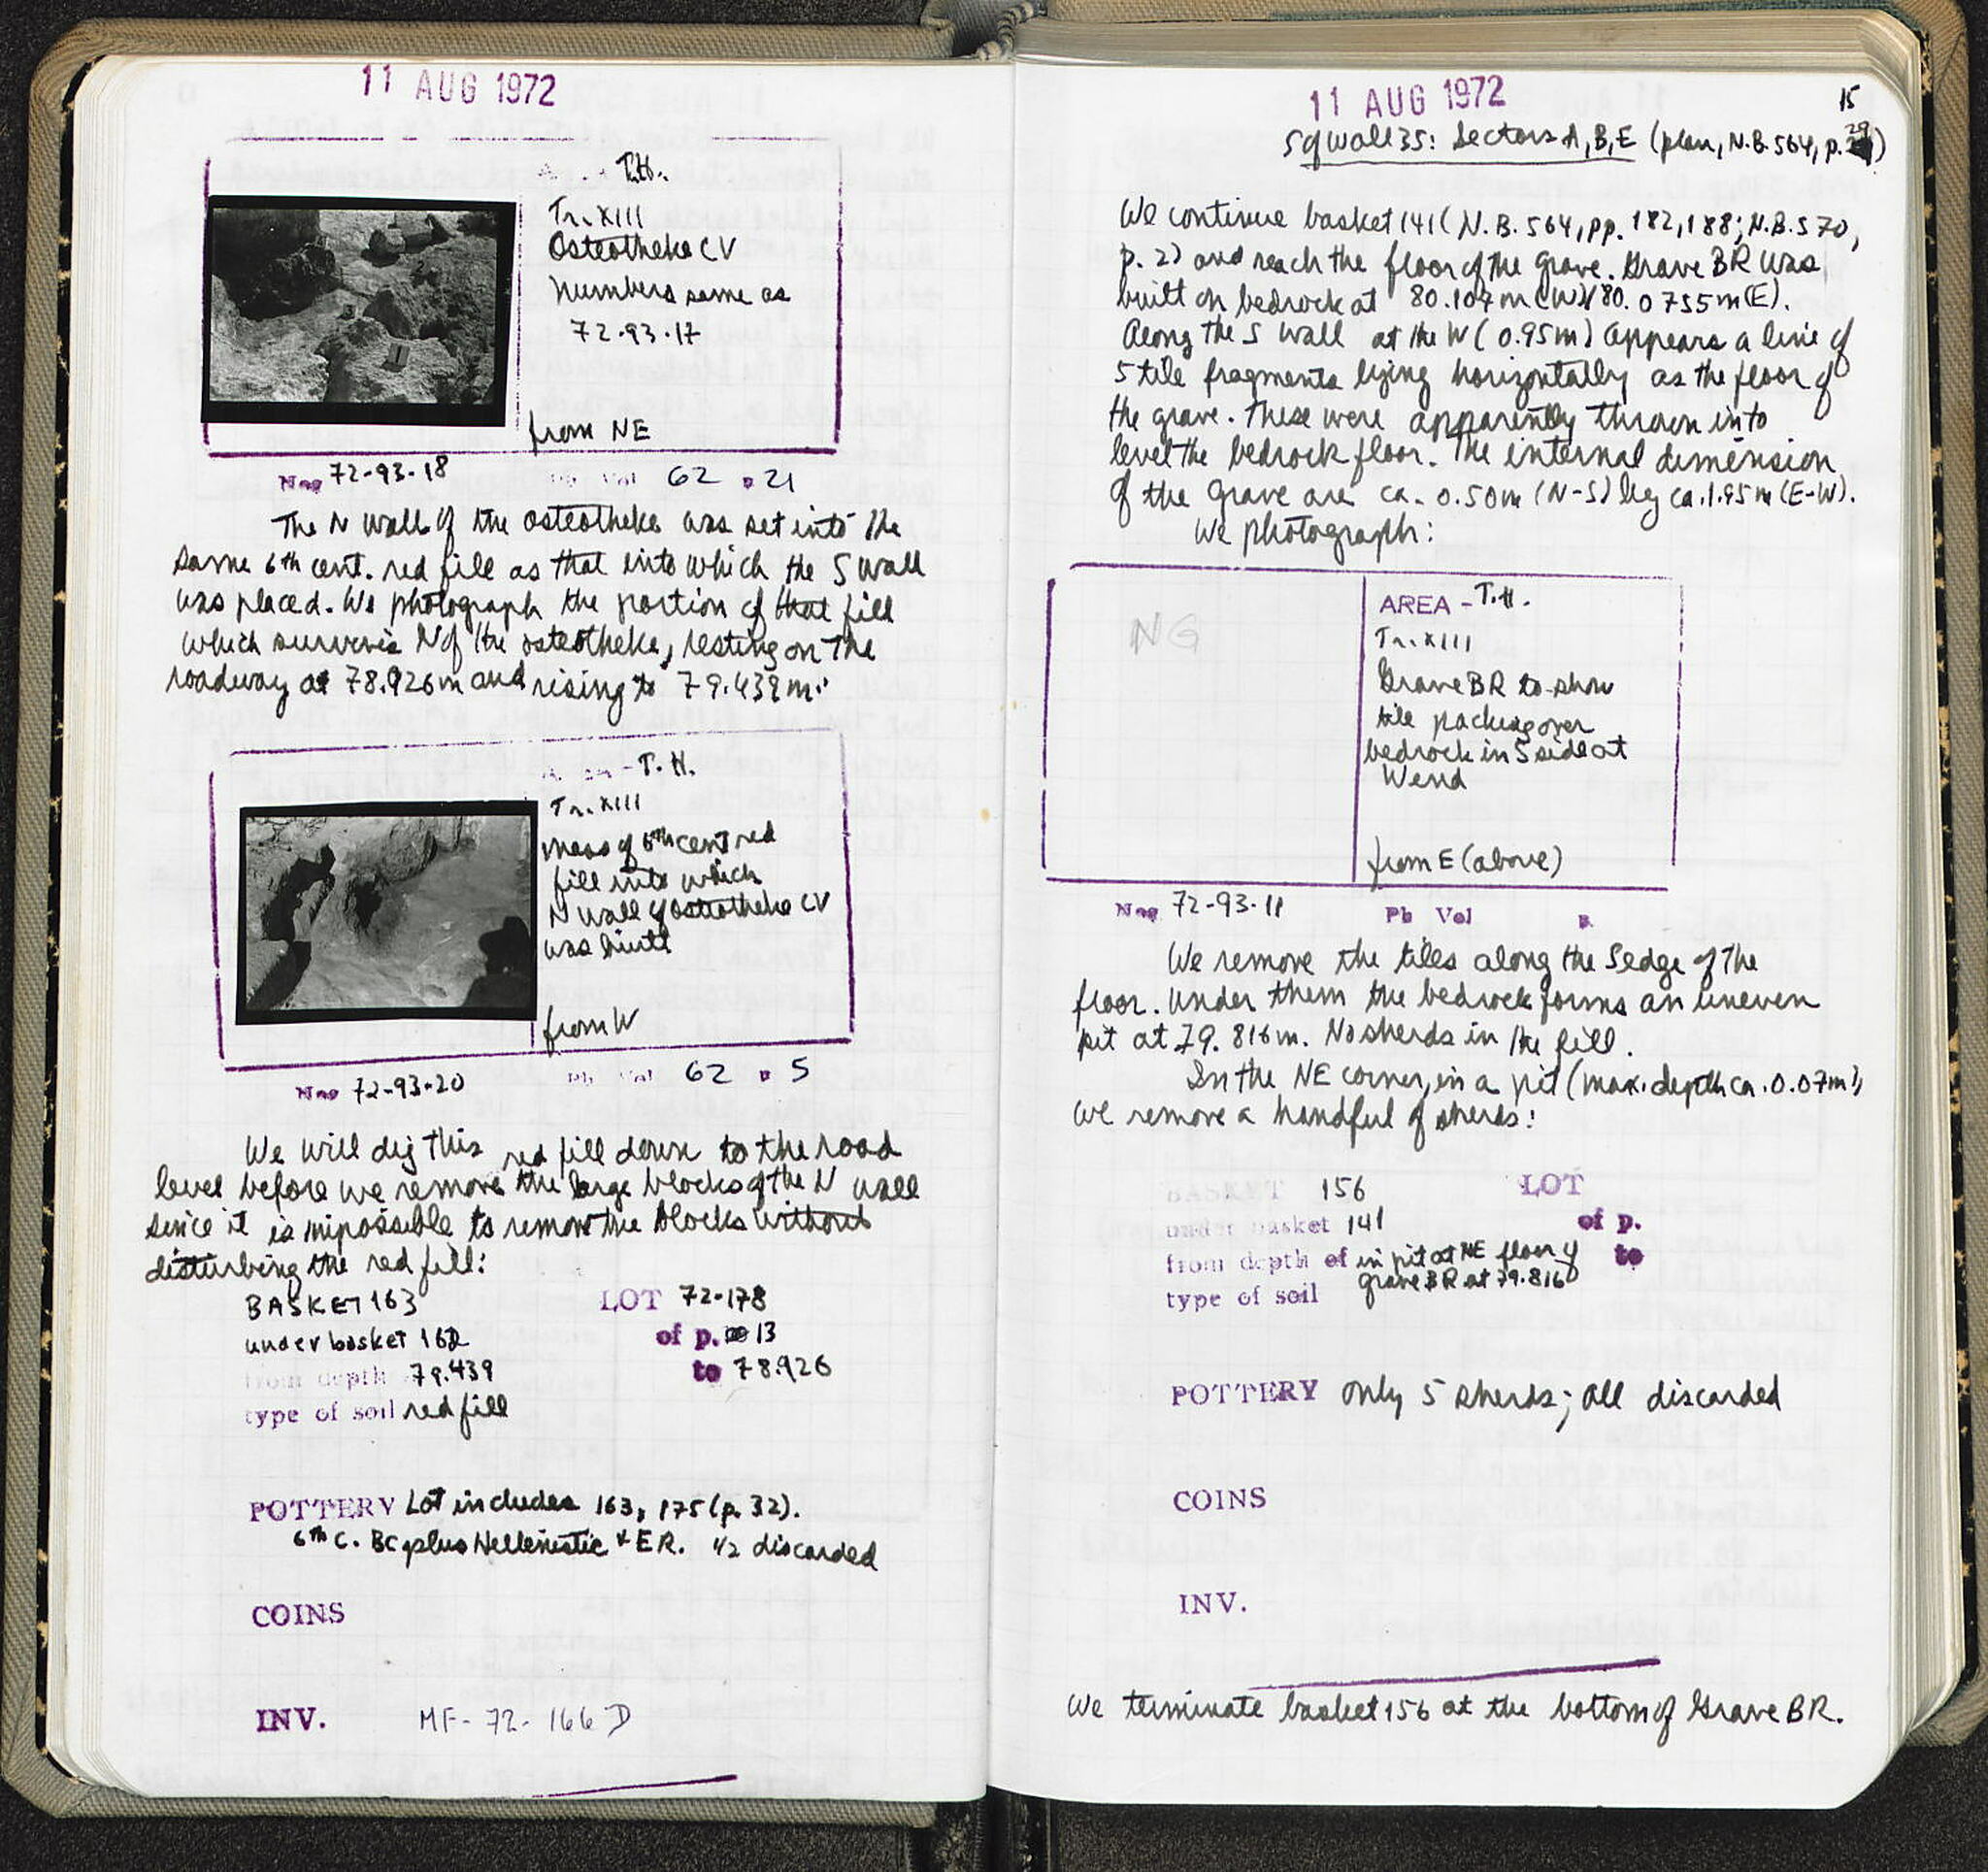 11 AUG 1972
T.H.
Tr. XIII
Osteotheke CV
Numbers same as
72-93-17
from NE
Neg 72-93-18 Pb Vol 62 p 21
The N wall of the osteotheke was set into the
same 6th cent. red fill as that into which the S wall
was placed. We photograph the portion of that fill
which survives N of the osteotheke, resting on the
roadway at 78.926m and rising to 79.439m:
T.H.
Tr. XIII
Mass of 6th cent red
fill into which
N wall of osteotheke CV
was built
from W
Neg 72-93-20 Pb Vol 62 p 5
We will dig this red fill down to the road
level before we remove the large blocks of the N wall
since it is impossible to remove the blocks without
disturbing the red fill:
BASKET 163 LOT 72-178
under basket 162 of p. 13
from depth 79.439 to 78.926
type of soil red fill
POTTERY Lot includes 163, 175 (p. 32).
6th C. BC plus Hellenistic + ER. 1/2 discarded
COINS
INV. MF-72-166 D
11 AUG 1972
15
Sq wall 35: Sectors A, B, E (plan, N.B. 564, p. 29)
We continue basket 141 (N.B. 564, pp. 182, 188; N.B. 570,
p. 2) and reach the floor of the grave. Grave BR was
built on bedrock at 80.107m (W)/80.0755m (E).
Along the S wall at the W (0.95m) appears a line of
5 tile fragments lying horizontally as the floor of
the grave. These were apparently thrown into
level the bedrock floor. The internal dimension
of the grave are ca. 0.50m (N-S) by ca. 1.95m (E-W).
We photograph:
NG
AREA - T.H.
Tr. XIII
Grave BR to show
tile packing over
bedrock in S side at
W end
from E (above)
Neg 72-93-11 Pb Vol p.
We remove the tiles along the S edge of the
floor. Under them the bedrock forms an uneven
pit at 79.816m. No sherds in the fill.
In the NE corner, in a pit (max. depth ca. 0.07m),
we remove a handful of sherds:
BASKET 156 LOT
under basket 141 of p.
from depth of in pit at NE floor of to
grave BR at 79.816
type of soil
POTTERY only 5 sherds; all discarded
COINS
INV.
We terminate basket 156 at the bottom of Grave BR.